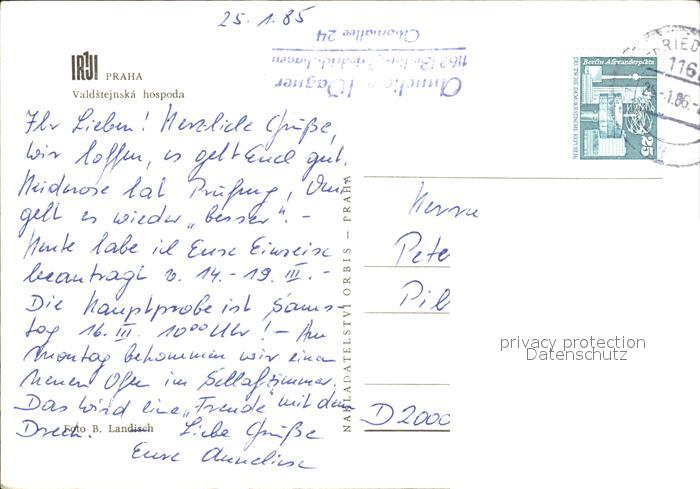 25.1.85
Annelies Wagner
1162 Berlin-Friedrichshagen
24
PRAHA
Valdštejnská hospoda
Ihr Lieben! Herzliche Grüße,
wir hoffen, es geht Euch gut.
Heiderose hat Prüfung,
geht es wieder „besser“. –
Heute habe ich Eure Einreise
beantragt v. 14. – 19. III. –
Die Hauptprobe ist Sams-
tag 16. III. 10⁰⁰ Uhr! – Am
Montag bekommen wir einen
neuen Ofen im Schlafzimmer.
Das wird eine „Freude“ mit dem
Dreck. Liebe Grüße
Eure Anneliese
Foto B. Landisch
NAKLADATELSTVÍ ORBIS – PRAHA
Berlin, Alexanderplatz
DEUTSCHE DEMOKRATISCHE REPUBLIK
25
116
Herrn
Pete
Pil
D 2000
privacy protection
Datenschutz